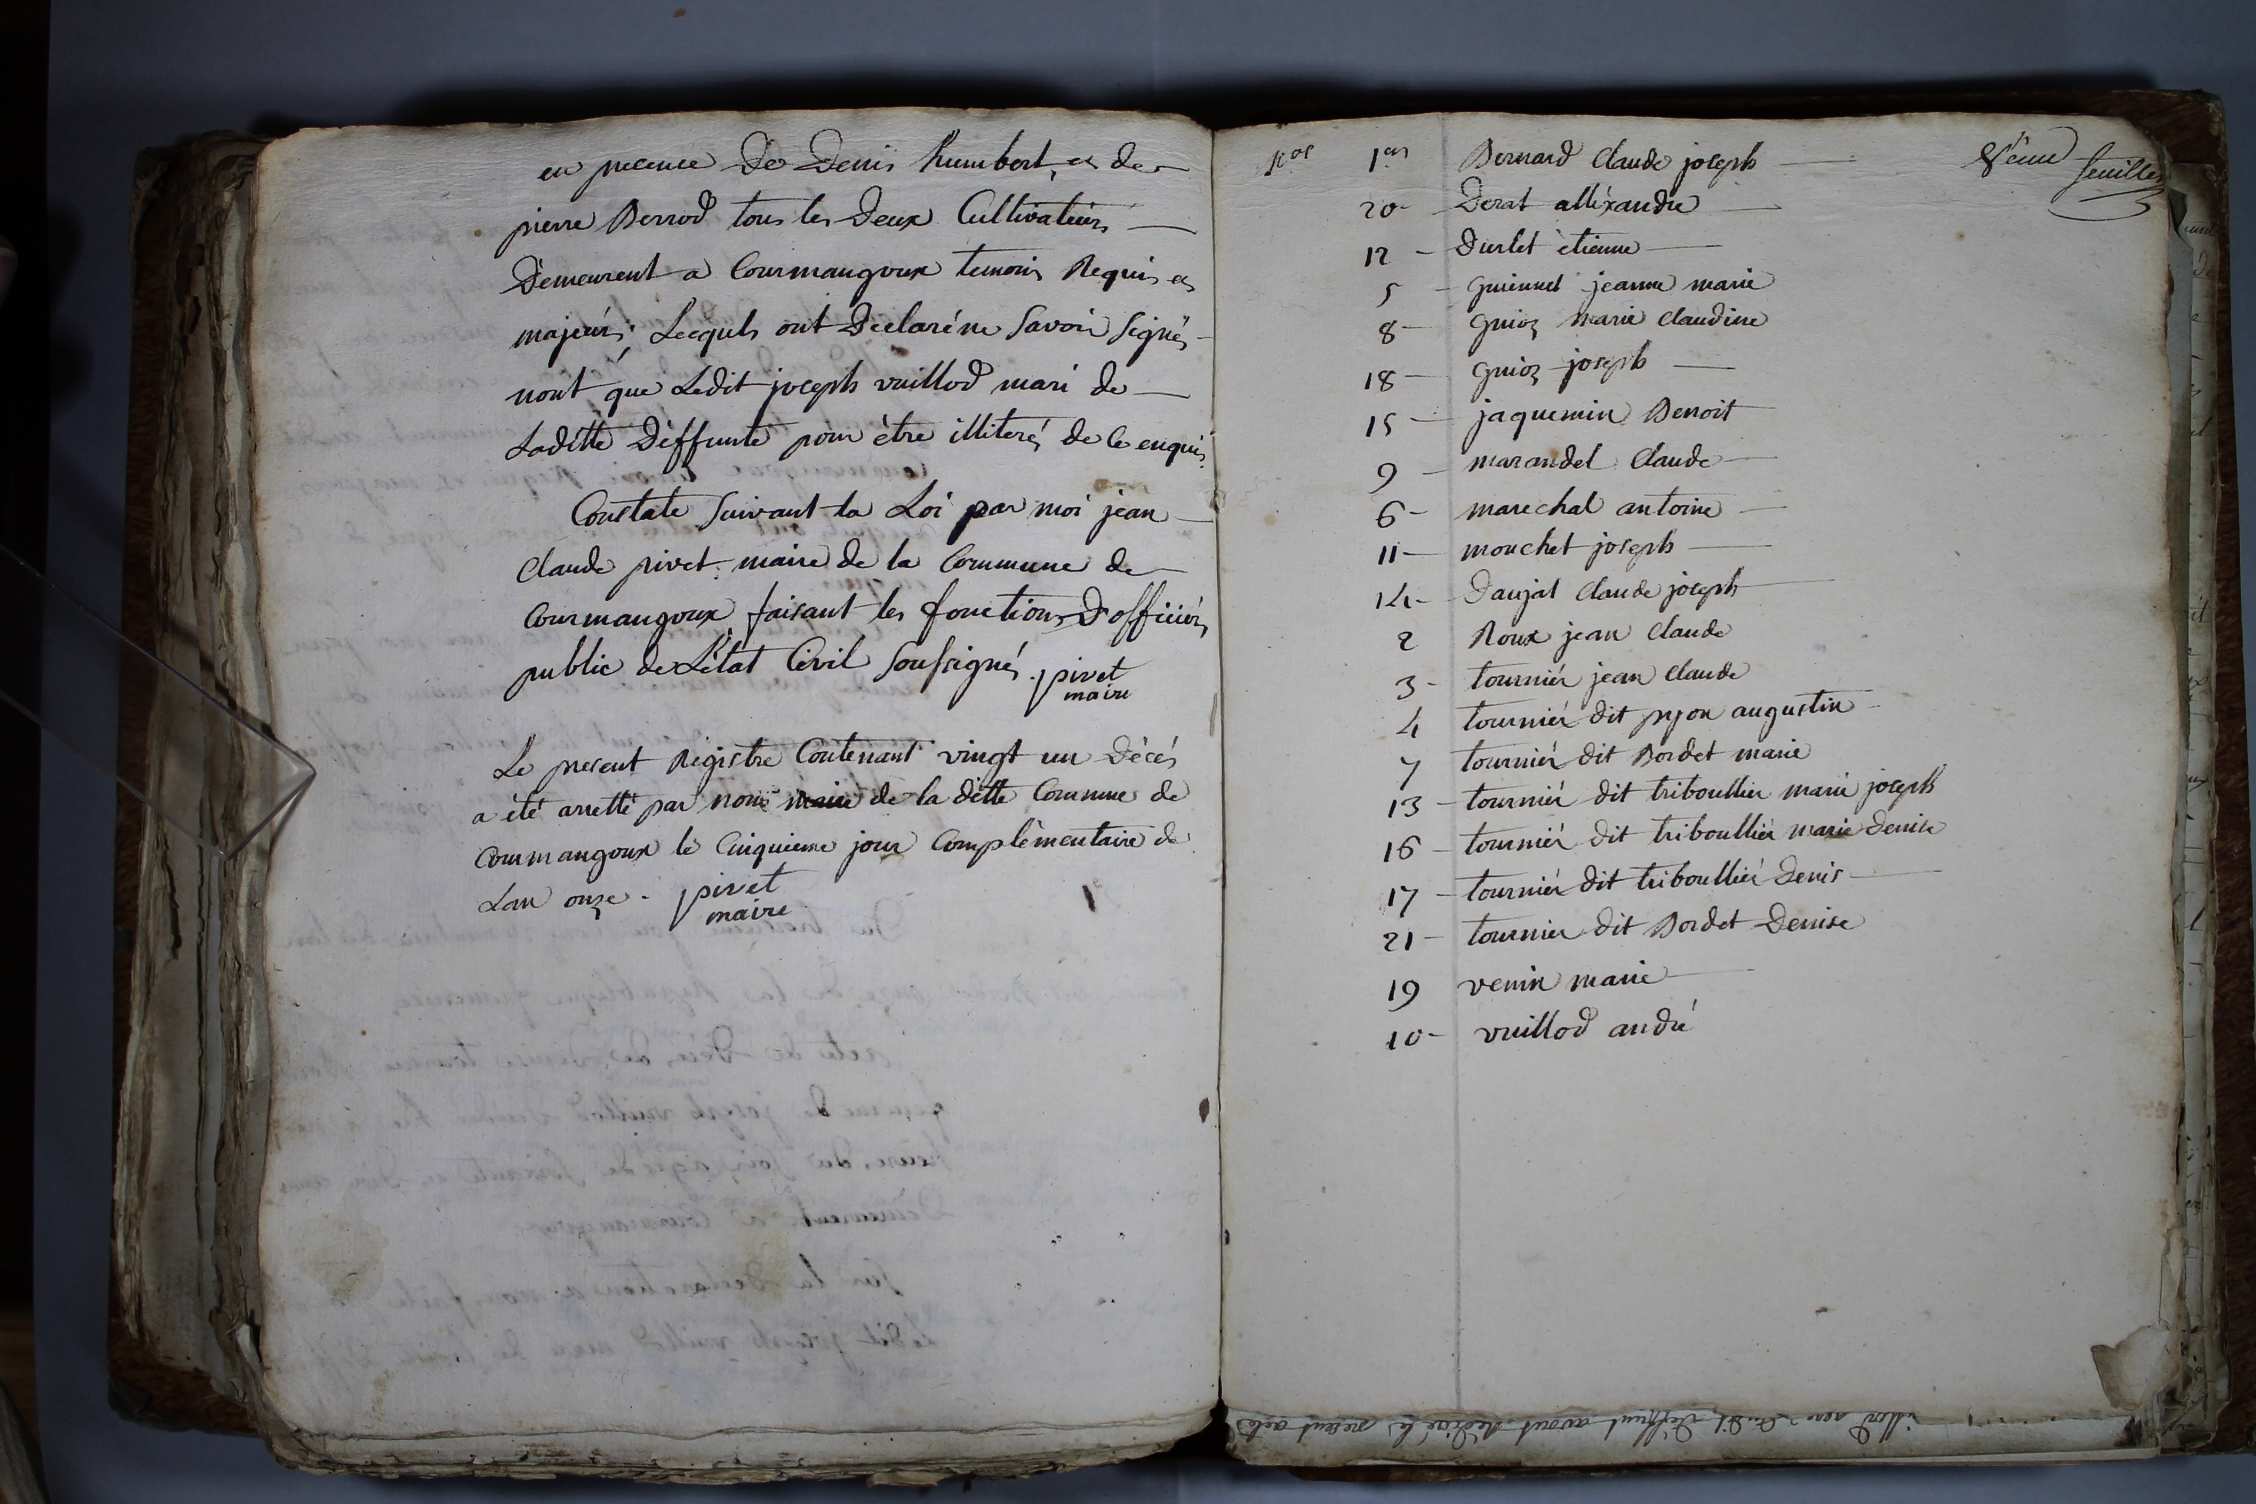 en precence de Denis humbert, et de
pierre Berrod tous les deux Cultivateurs
Demeurent a Courmangoux temoins Requis et
majeurs; Lecquels ont Déclaré ne Savoir Signés
nont que Ledit joseph vuillod mari de
Laditte Déffunte pour être illiterés de ce enquis.
Constate Suivant la Loi par moi jean
Claude pivet maire de la Commune de
Courmangoux faisant les fonctions D'officiérs
public de L'état Civil Soussigné. pivet
maire
Le present Régistre Contenant vingt un Décés
a été arretté par nous maire de la ditte Commune de
Courmangoux le Cinquieme jour Complémentaire de
Lan onze. pivet
maire
Nos 1er Bernard Claude joseph
8éme feuillet
20 Derat alléxandre
12 Durlet étienne
5 guiennet jeanne marie
8 guioz marie Claudine
18 guioz joseph
15 jaquemin Benoit
9 marandel Claude
6 marechal antoine
11 mouchet joseph
14 Daujat Claude joseph
2 Roux jean Claude
3 tourniér jean Claude
4 tourniér dit pyon augustin
7 tourniér dit Bordet marie
13 tourniér dit triboullier marie joseph
16 tourniér dit triboulliér marie Denise
17 tourniér dit triboulliér Denis
21 tournier dit Bordet Denise
19 venin marie
10 vuillod andré
Dit Déffunt avant Rédigé le present acte